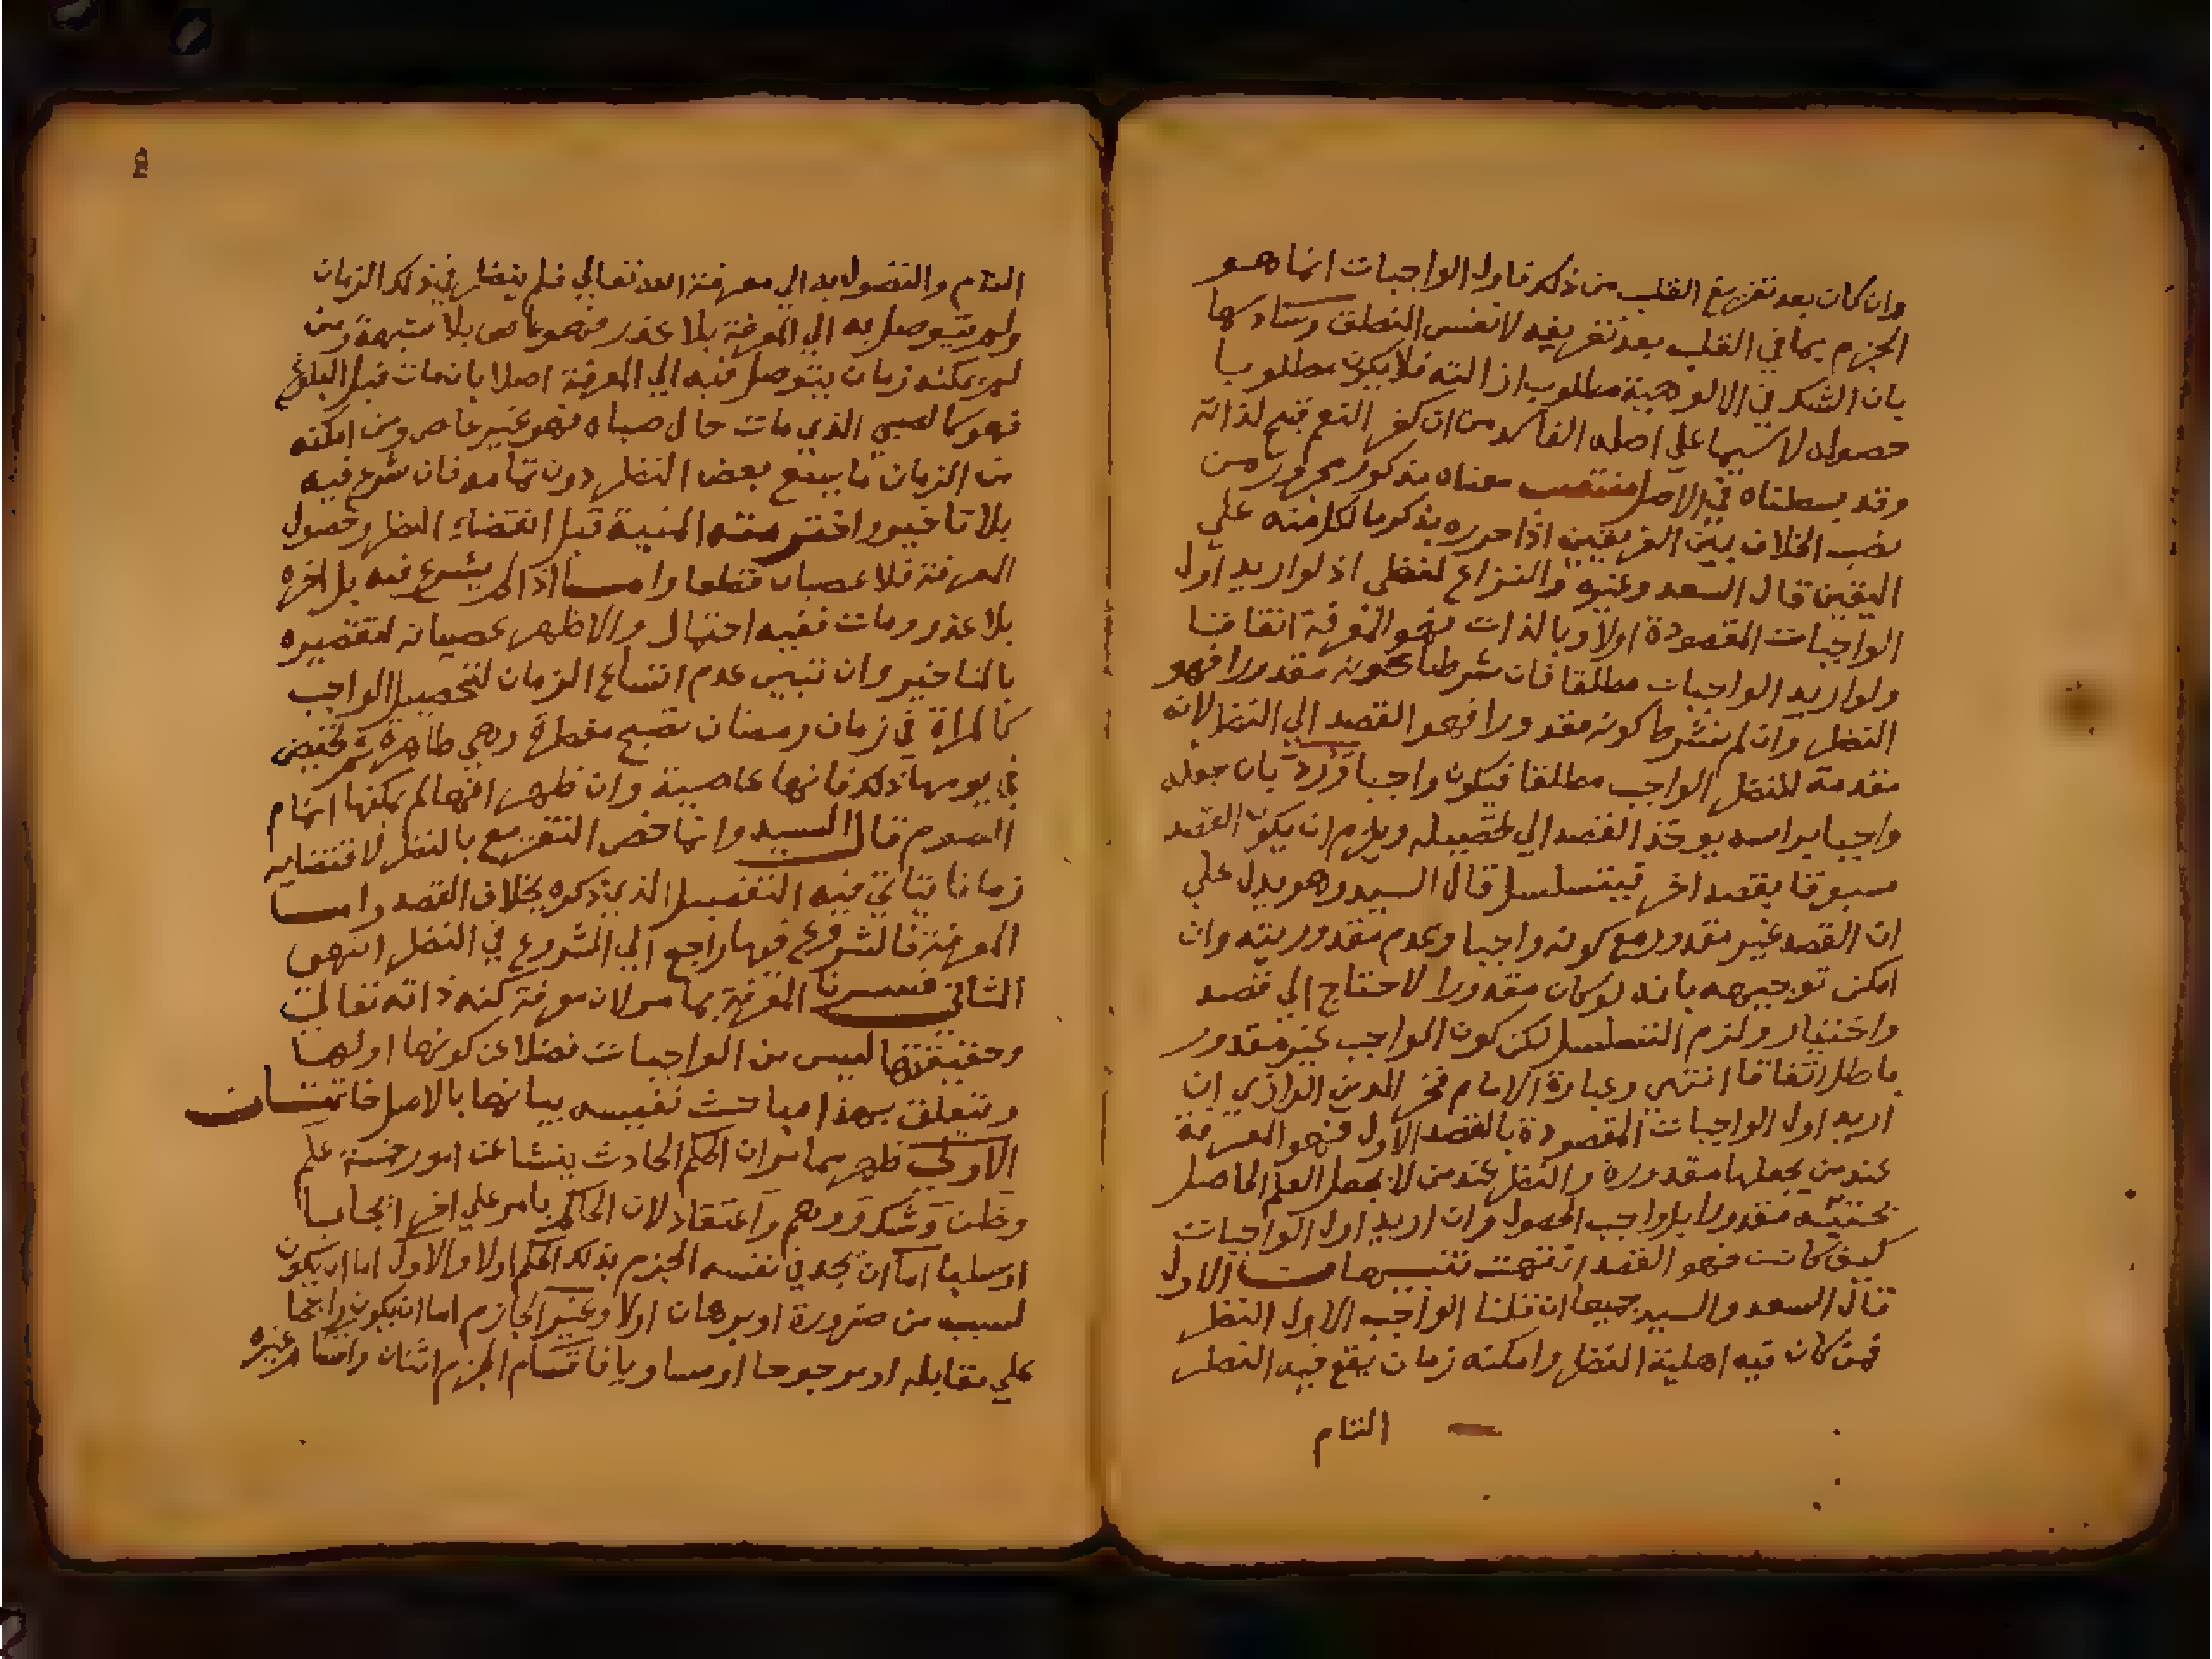 وان كان بعد تفريغ القلب من ذلك فاول الواجبات انما هو
الجزم بما في القلب بعد تفريغه لا نفس النطق
بان الشك في الالوهية مطلوب ازالته فلا يكون مطلوبا
حصوله لا سيما علي اصله الفاسد من ان كفر النعم قبح لذاته
وقد بسطناه في الاصل معناه مذكور
الخلاف بين الفريقين اذا حرره بذكر ما لكل منه علي
اليقين قال السعد وغيره والنزاع لفظي اذ لو اريد اول
الواجبات المقصودة اولا وبالذات فهو المعرفة اتفاقا
ولو اريد الواجبات مطلقا فان شرطنا كونه مقدورا فهو
النظر وان لم نشرط كونه مقدورا فهو القصد الي النظر لانه
مقدمة للنظر الواجب مطلقا فيكون واجبا ورد بان جعله
واجبا براسه يوخذ القصد الي تحصيله ويلزم ان يكون القصد
مسبوقا بقصد اخر فيتسلسل قال السيد وهو يدل علي
ان القصد غير مقدور مع كونه واجبا وعدم مقدوريته وان
امكن توجيهه بانه لو كان مقدورا لاحتاج الي قصد
واختيار ولزم التسلسل لكن كون الواجب غير مقدور
باطل اتفاقا انتهي وعبارة الامام فخر الدين الرازي ان
اريد اول الواجبات المقصودة بالقصد الاول فهو المعرفة
عند من يجعلها مقدورة والنظر عند من لا يجعل العلم الحاصل
عقيبه مقدورا بل واجب الحصول وان اريد اول الواجبات
كيف كانت فهو القصد انتهت تنبيهات الاول
قال السعد والسيد جميعا ان قلنا الواجب الاول النظر
فمن كان فيه اهلية النظر وامكنه زمان يقع فيه النظر
التام
التام والتوصل به الي معرفة الله تعالي فلم ينظر في ذلك الزمان
ولم يتوصل به الي المعرفة بلا عذر فهو عاص بلا شبهة ومن
لم يمكنه زمان يتوصل فيه الي المعرفة اصلا بان مات قبل البلوغ
فهو كالصبي الذي مات حال صباه فهو غير عاص ومن امكنه
من الزمان ما يسع بعض النظر دون تمامه فان شرع فيه
بلا تاخير واخترمته المنية قبل انقضاء النظر وحصول
المعرفة فلا عصيان قطعا واما اذا لم يشرع فيه بل اخره
بلا عذر ومات ففيه احتمال والاظهر عصيانه لتقصيره
بالتاخير وان تبين عدم اتساع الزمان لتحصيل الواجب
كالمراة في زمان رمضان تصبح مفطرة وهي طاهرة ثم تحيض
في يومها ذلك فانها عاصية وان ظهر انها لم يمكنها اتمام
الصوم قال السيد وانما خص التفريع بالنظر لاقتضايه
زمانا يتاتي فيه التفصيل الذي ذكره بخلاف القصد واما
المعرفة فالشروع فيها راجع الي الشروع في النظر انتهي
الثاني فسرنا المعرفة بما مر لان معرفة كنه ذاته تعالي
وحقيقتها ليس من الواجبات فضلا عن كونها اولها
ويتعلق بهذا مباحث نفيسه بيانها بالاصل خاتمتان
الاولي ظهر بما مر ان الحكم الحادث ينشا عن امور خمسة علم
وظن وشك ووهم واعتقاد لان الحاكم بامر علي اخر ايجابا
او سلبا اما ان يجد في نفسه الجزم بذلك الحكم اولا والاول اما ان يكون
لسبب من ضرورة او برهان اولا وغير الجازم اما ان يكون راجحا
علي مقابله او مرجوحا او مساويا فاقسام الجزم اثنان واقسام غيره